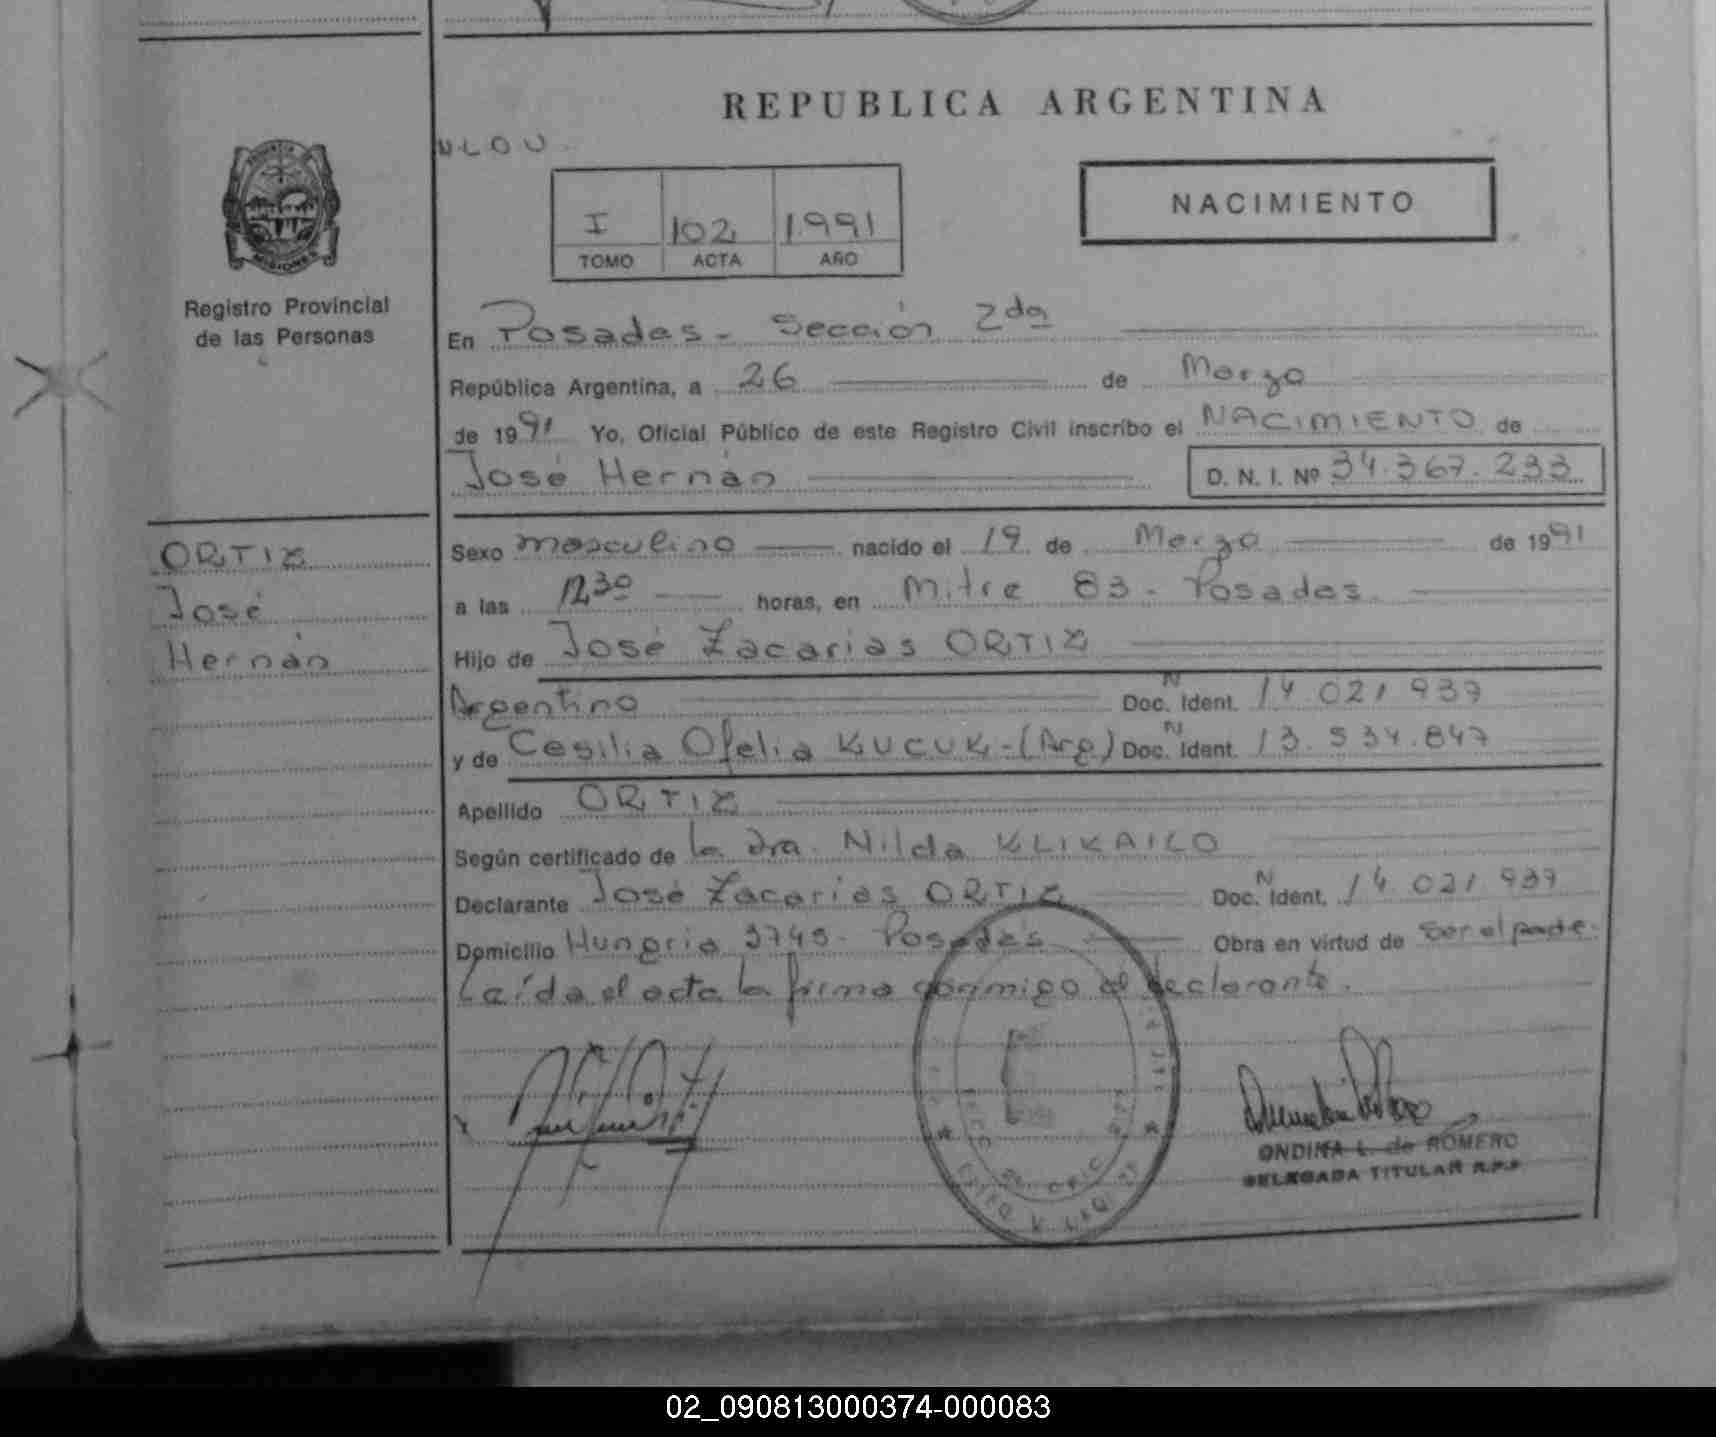 REPUBLICA ARGENTINA
NACIMIENTO
I 102 1991
TOMO ACTA AÑO
PROVINCIA
MISIONES
Registro Provincial
de las Personas
En Posadas - Sección 2da
República Argentina, a 26 de Marzo
de 1991 Yo, Oficial Público de este Registro Civil inscribo el NACIMIENTO de
José Hernán D. N. I. Nº 34.367.233
ORTIZ
José
Hernán
Sexo masculino nacido el 19 de Marzo de 1991
a las 12,30 horas, en Mitre 83 - Posadas.
Hijo de José Zacarias ORTIZ
Argentino Doc. N Ident. 14.021.937
y de Cesilia Ofelia KUCUK - (Arg) Doc. N Ident. 13.534.847
Apellido ORTIZ
Según certificado de la Dra. Nilda KLIKAILO
Declarante José Zacarias ORTIZ Doc. N Ident. 14.021.937
Domicilio Hungria 3745 - Posadas Obra en virtud de ser el padre.
Leída el acta la firma conmigo el declarante.
ONDINA L. de ROMERO
DELEGADA TITULAR R.P.P
02_090813000374-000083